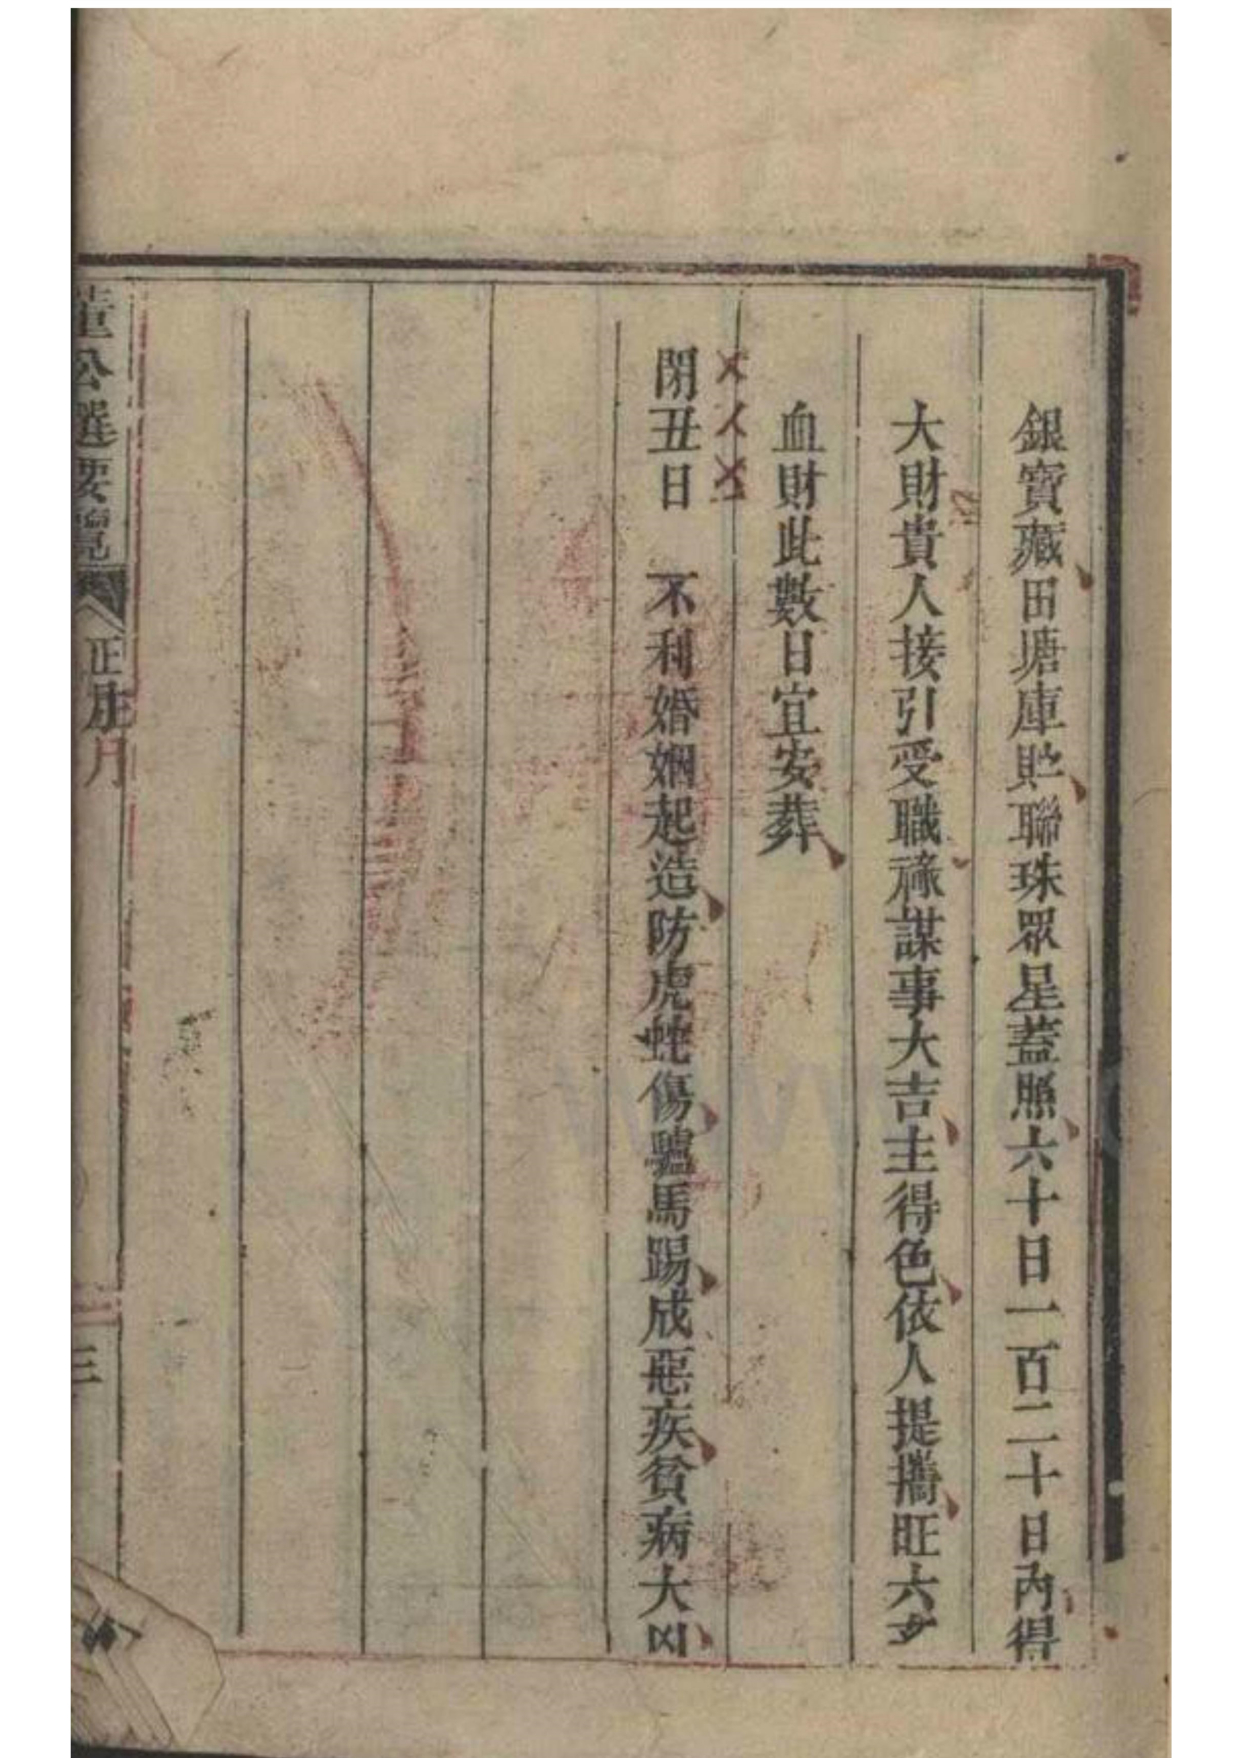 銀寶藏田塘庫貯聯珠眾星蓋照六十日一百二十日內得
大財貴人接引受職祿謀事大吉主得色依人提攜旺六
血財此數日宜安葬
閉丑日 不利婚姻起造防虎蛇傷驢馬踢成惡疾貧病大凶
董公選要覽 正月
三